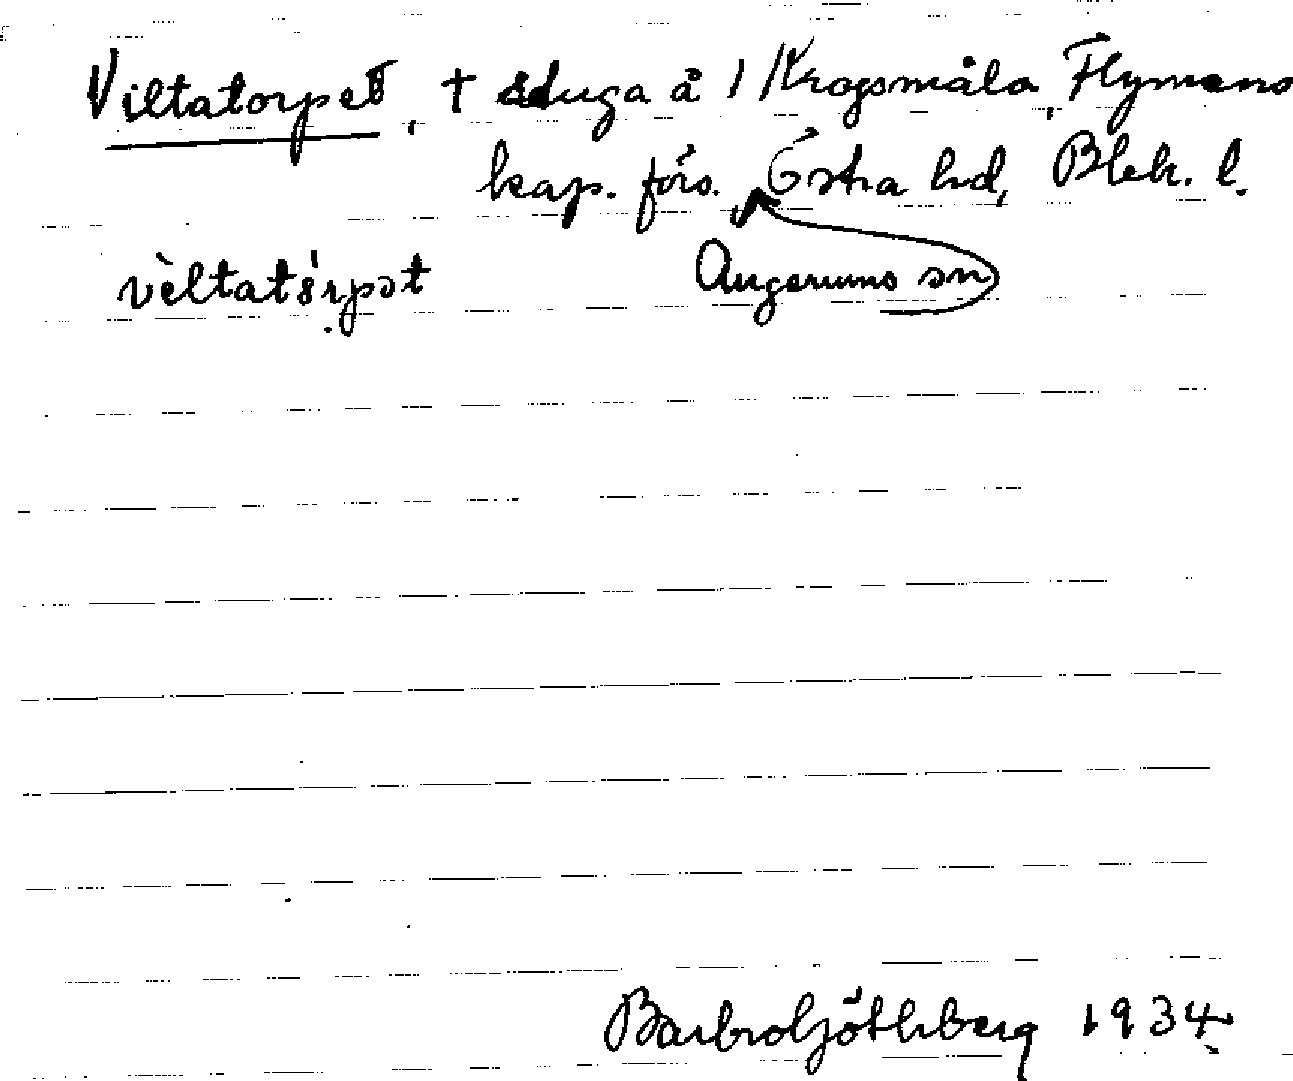 Viltatorpet, † stuga å 1 Krogsmåla, Flymens
kap. förs. Östra hd, Blek. l.
vèltatå̀rpət Augerums sn
Barbro Göthberg 1934